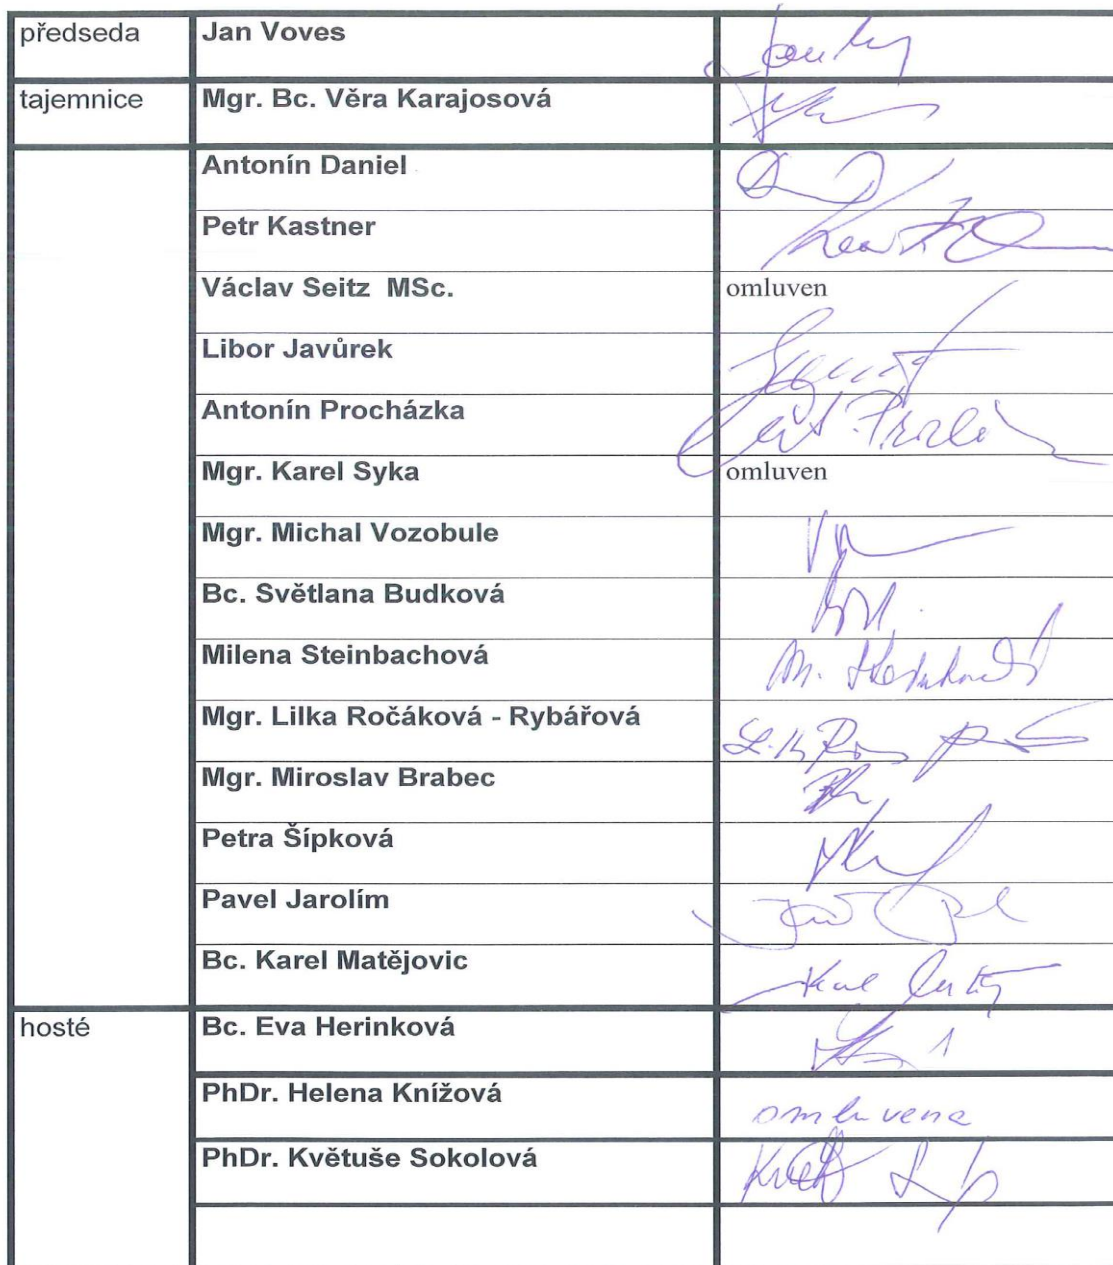 předseda Jan Voves
tajemnice Mgr. Bc. Věra Karajosová
Antonín Daniel
Petr Kastner
Václav Seitz MSc. omluven
Libor Javůrek
Antonín Procházka
Mgr. Karel Syka omluven
Mgr. Michal Vozobule
Bc. Světlana Budková
Milena Steinbachová
Mgr. Lilka Ročáková - Rybářová
Mgr. Miroslav Brabec
Petra Šípková
Pavel Jarolím
Bc. Karel Matějovic
hosté Bc. Eva Herinková
PhDr. Helena Knížová omluvena
PhDr. Květuše Sokolová